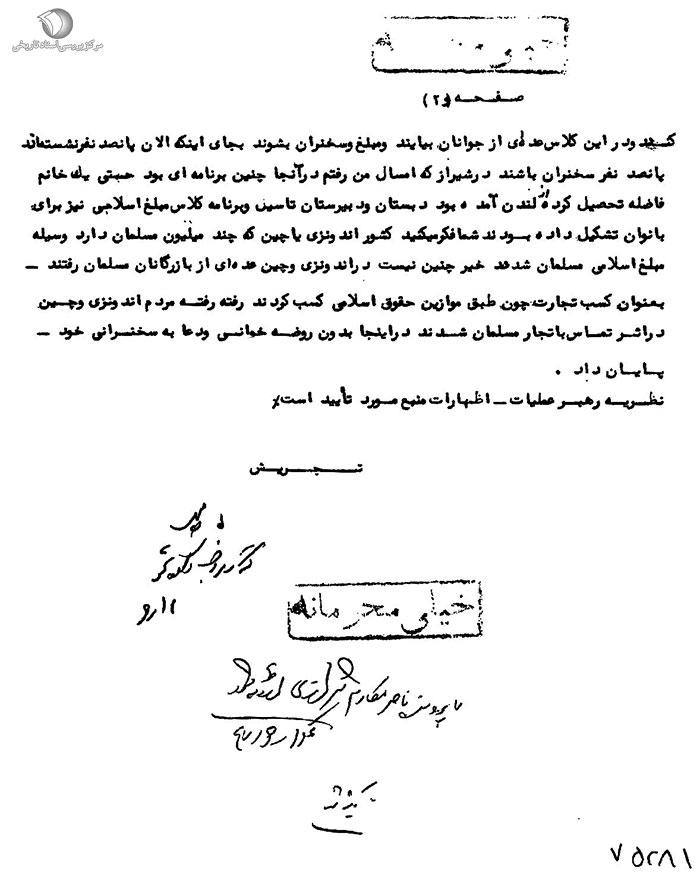 مرکز بررسی اسناد تاریخی
صفحه (۲)
کنند ودر این کلاس عده‌ای از جوانان بیایند ومبلغ وسخنران بشوند بجای اینکه الان پانصد نفر نشسته‌اند
پانصد نفر سخنران باشند درشیراز که امسال من رفتم درآنجا چنین برنامه ای بود حبتی یك خانم
فاضله تحصیل کرده از لندن آمده بود دبستان ودبیرستان تاسیس وبرنامه کلاس مبلغ اسلامی نیز برای
بانوان تشکیل داده بودند شما فکرمیکنید کشور اندونزی یاچین که چند میلیون مسلمان دارد وسیله
مبلغ اسلامی مسلمان شدند خیر چنین نیست دراندونزی وچین عده‌ای از بازرگانان مسلمان رفتند ــ
بعنوان کسب تجارت چون طبق موازین حقوق اسلامی کسب کردند رفته رفته مردم اندونزی وچین
دراثر تماس باتجار مسلمان شدند دراینجا بدون روضه خوانی ودعا به سخنرانی خود ــ
پایان داد .
نظریه رهبر عملیات ــ اظهارات منبع مورد تأیید است٪
تجریش
خیلی محرمانه
ناصر مکارم
۷۵۲۸۱